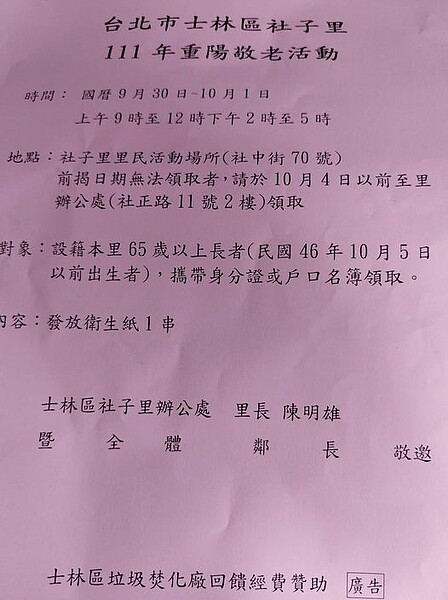 台北市士林區社子里
111 年重陽敬老活動
時間： 國曆 9 月 30 日~10 月 1 日
上午 9 時至 12 時下午 2 時至 5 時
地點：社子里里民活動場所(社中街 70 號)
前揭日期無法領取者，請於 10 月 4 日以前至里
辦公處(社正路 11 號 2 樓)領取
對象：設籍本里 65 歲以上長者(民國 46 年 10 月 5 日
以前出生者)，攜帶身分證或戶口名簿領取。
內容：發放衛生紙 1 串
士林區社子里辦公處 里長 陳明雄
暨 全 體 鄰 長 敬邀
士林區垃圾焚化廠回饋經費贊助 廣告